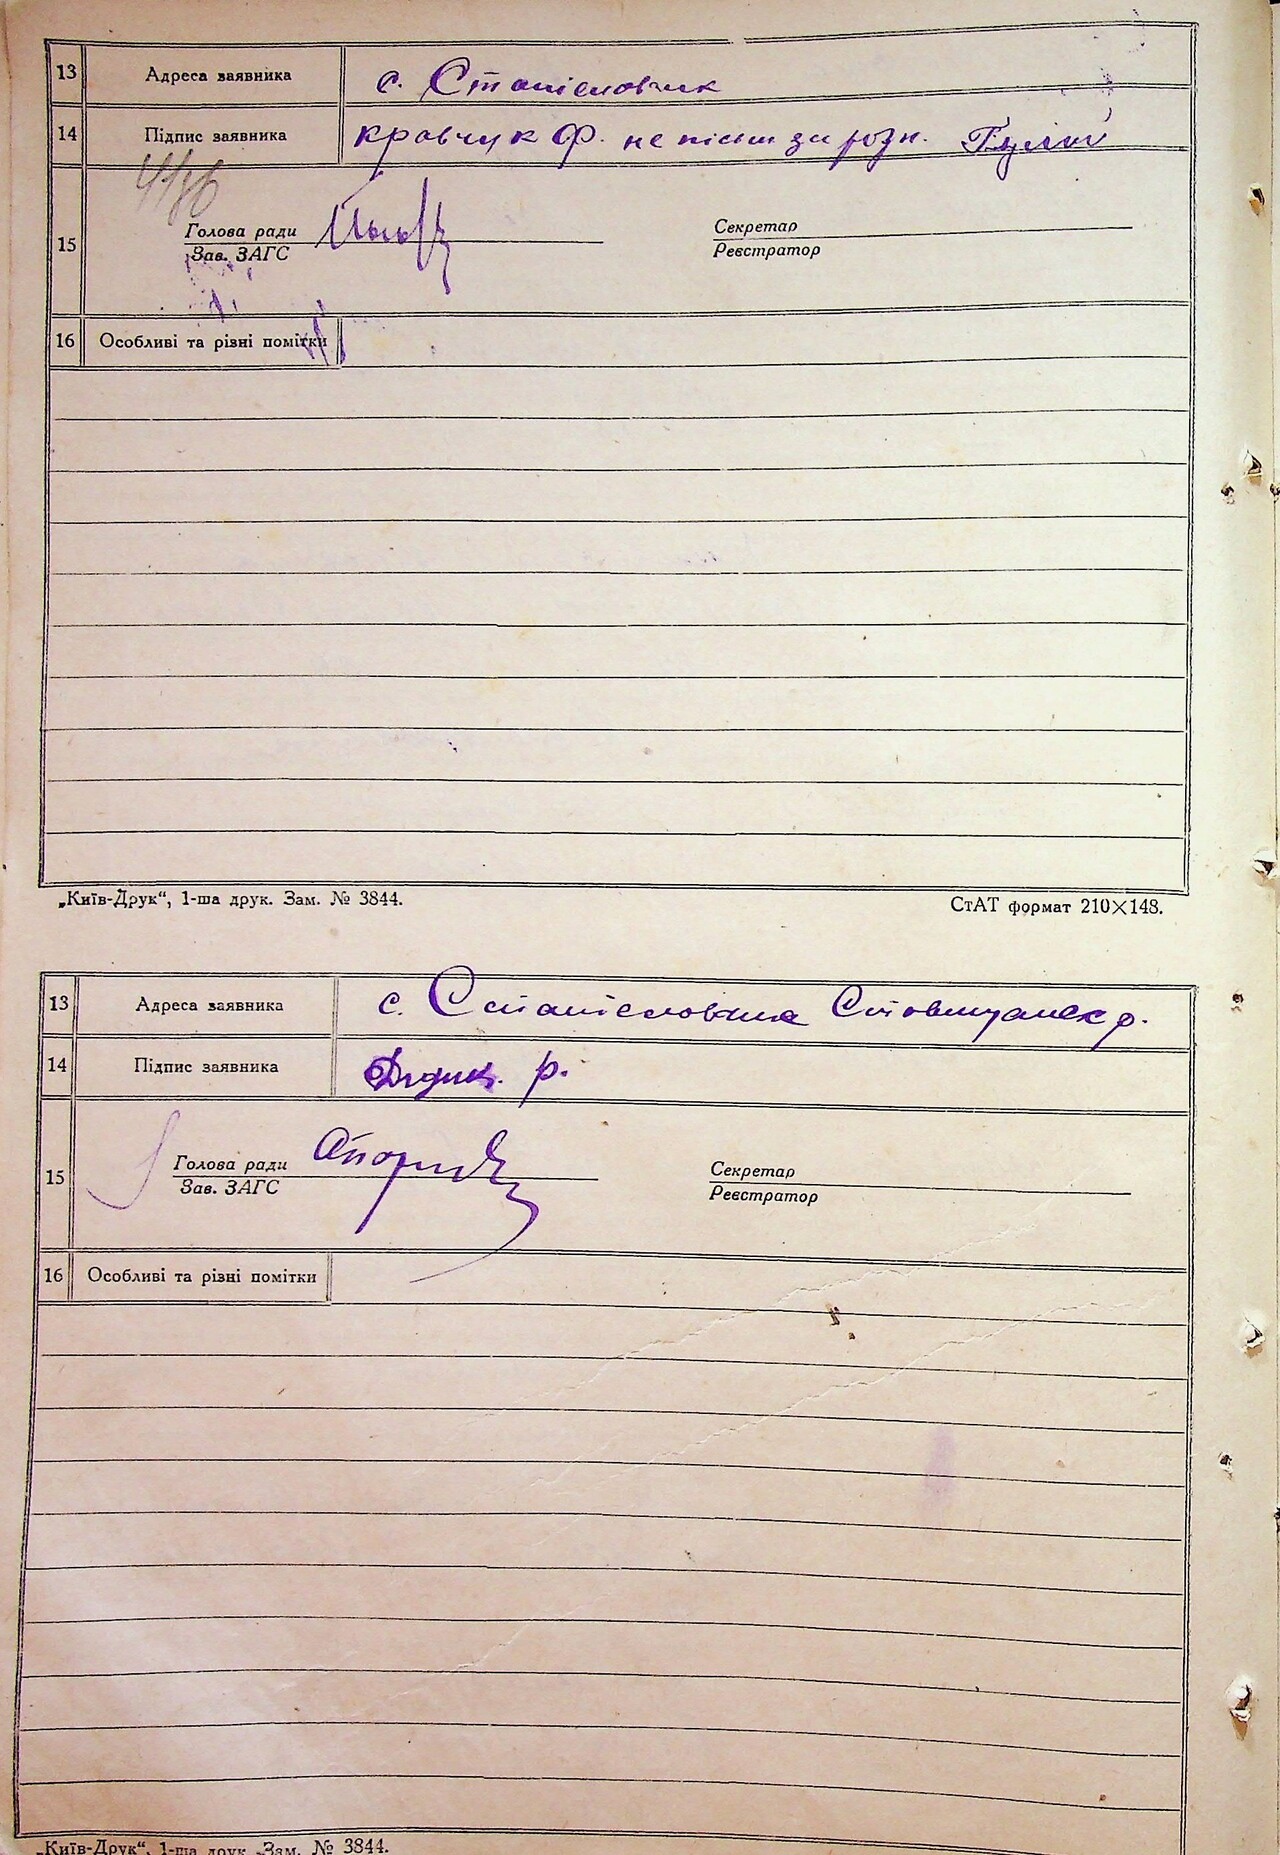 13 Адреса заявника с. Станіславчик
14 Підпис заявника Кравчук Ф. не письм за розп.
15 Голова ради Секретар
Зав. ЗАГС Реєстратор
16 Особливі та різні помітки
„Київ-Друк“, 1-ша друк. Зам. № 3844. СтАТ формат 210×148.
13 Адреса заявника с. р.
14 Підпис заявника р.
15 Голова ради Секретар
Зав. ЗАГС Реєстратор
16 Особливі та різні помітки
„Київ-Друк“, 1-ша друк. Зам. № 3844.